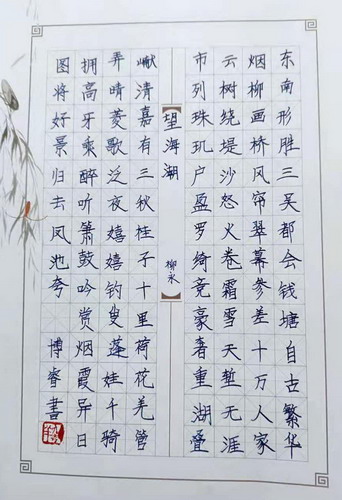 东南形胜三吴都会钱塘自古繁华
烟柳画桥风帘翠幕参差十万人家
云树绕堤沙怒火卷霜雪天堑无涯
市列珠玑户盈罗绮竞豪奢重湖叠
【望海潮 柳永】
巘清嘉有三秋桂子十里荷花羌管
弄晴菱歌泛夜嬉嬉钓叟莲娃千骑
拥高牙乘醉听箫鼓吟赏烟霞异日
图将好景归去凤池夸 博睿書